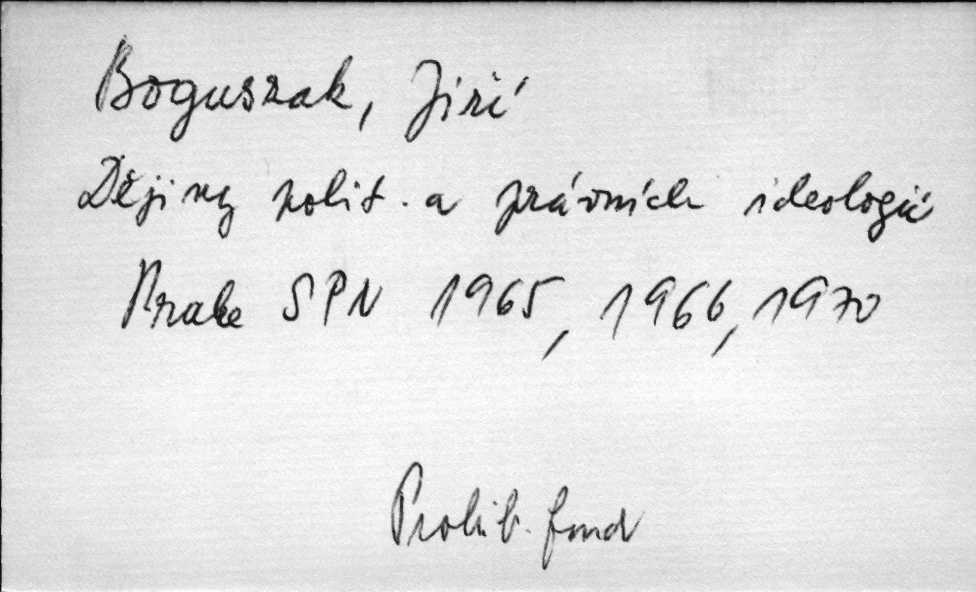 Boguszak, Jiří
Dějiny polit. a právních ideologií
Praha SPN 1965, 1966, 1970
Prohib. fond